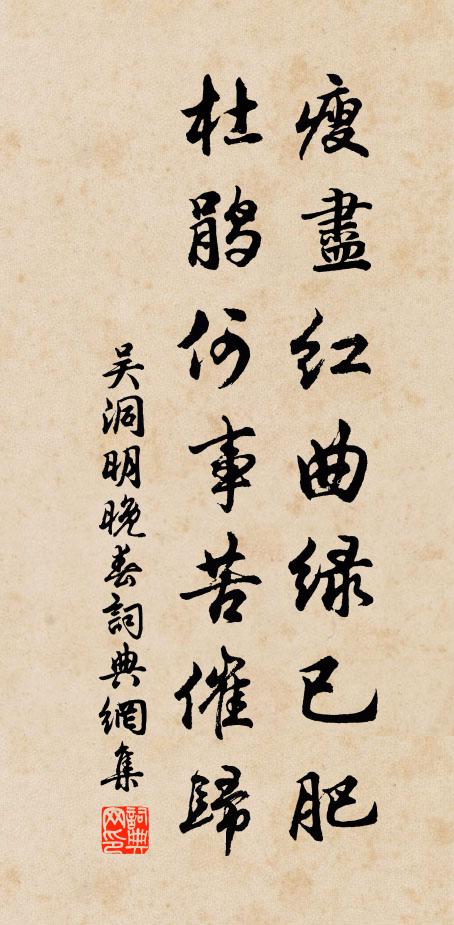 瘦盡红曲绿已肥
杜鹃何事苦催歸
吴洞明晚春詞典網集
詞典网印